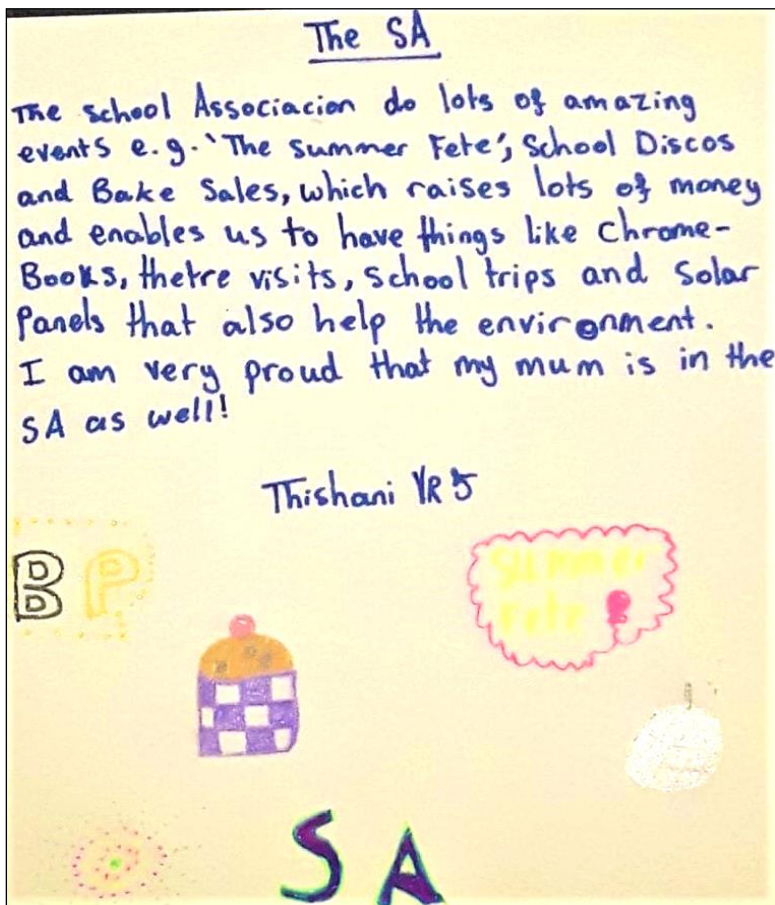 The SA
The School Associacion do lots of amazing
events e.g. 'The Summer Fete', School Discos
and Bake Sales, which raises lots of money
and enables us to have things like Chrome-
Books, thetre visits, School trips and Solar
Panels that also help the environment.
I am very proud that my mum is in the
SA as well!
Thishani YR 5
B P
Summer
Fete
SA